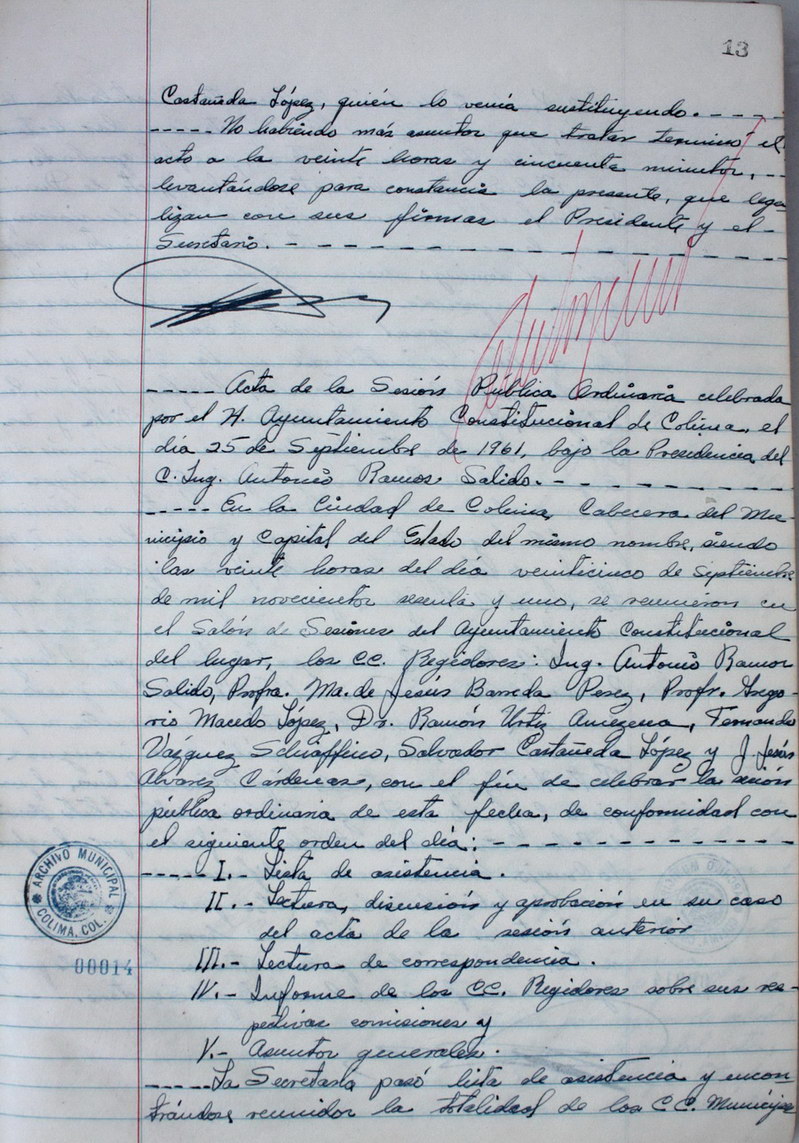 13
Castañeda López, quién lo venía sustituyendo.- - - -
- - - - - No habiendo más asuntos que tratar terminó el
acto a la veinte horas y cincuenta minutos, - -
levantándose para constancia la presente, que lega
lizan con sus firmas el Presidente y el
Secretario. - - - - - - - - - - - - - - - -
- - - - - Acta de la Sesión Pública Ordinaria celebrada
por el H. Ayuntamiento Constitucional de Colima, el
día 25 de Septiembre de 1961, bajo la Presidencia del
C. Ing. Antonio Ramos Salido.- - - - - - - - -
- - - - - En la Ciudad de Colima, Cabecera del Mu-
nicipio y Capital del Estado del mismo nombre, siendo
las veinte horas del día veinticinco de Septiembre
de mil novecientos sesenta y uno, se reunieron en
el Salón de Sesiones del Ayuntamiento Constitucional
del lugar, los CC. Regidores: Ing. Antonio Ramos
Salido, Profra. Ma. de Jesús Barreda Perez, Profr. Grego-
rio Macedo López, Dr. Ramón Urtiz Amezcua, Fernando
Vazquez Schiaffino, Salvador Castañeda López y J. Jesús
Alvarez Cárdenas, con el fin de celebrar la sesión
pública ordinaria de esta fecha, de conformidad con
el siguiente orden del día: - - - - - - - - - - - -
- - - - - I.- Lista de asistencia.
II.- Lectura, discusión y aprobación en su caso
del acta de la sesión anterior
III.- Lectura de correspondencia.
IV.- Informe de los CC. Regidores sobre sus res-
pectivas comisiones y
V.- Asuntos generales.
- - - - - La Secretaría pasó lista de asistencia y encon
trándose reunidos la totalidad de los C.C. Munícipes
ARCHIVO MUNICIPAL
COLIMA, COL.
00014